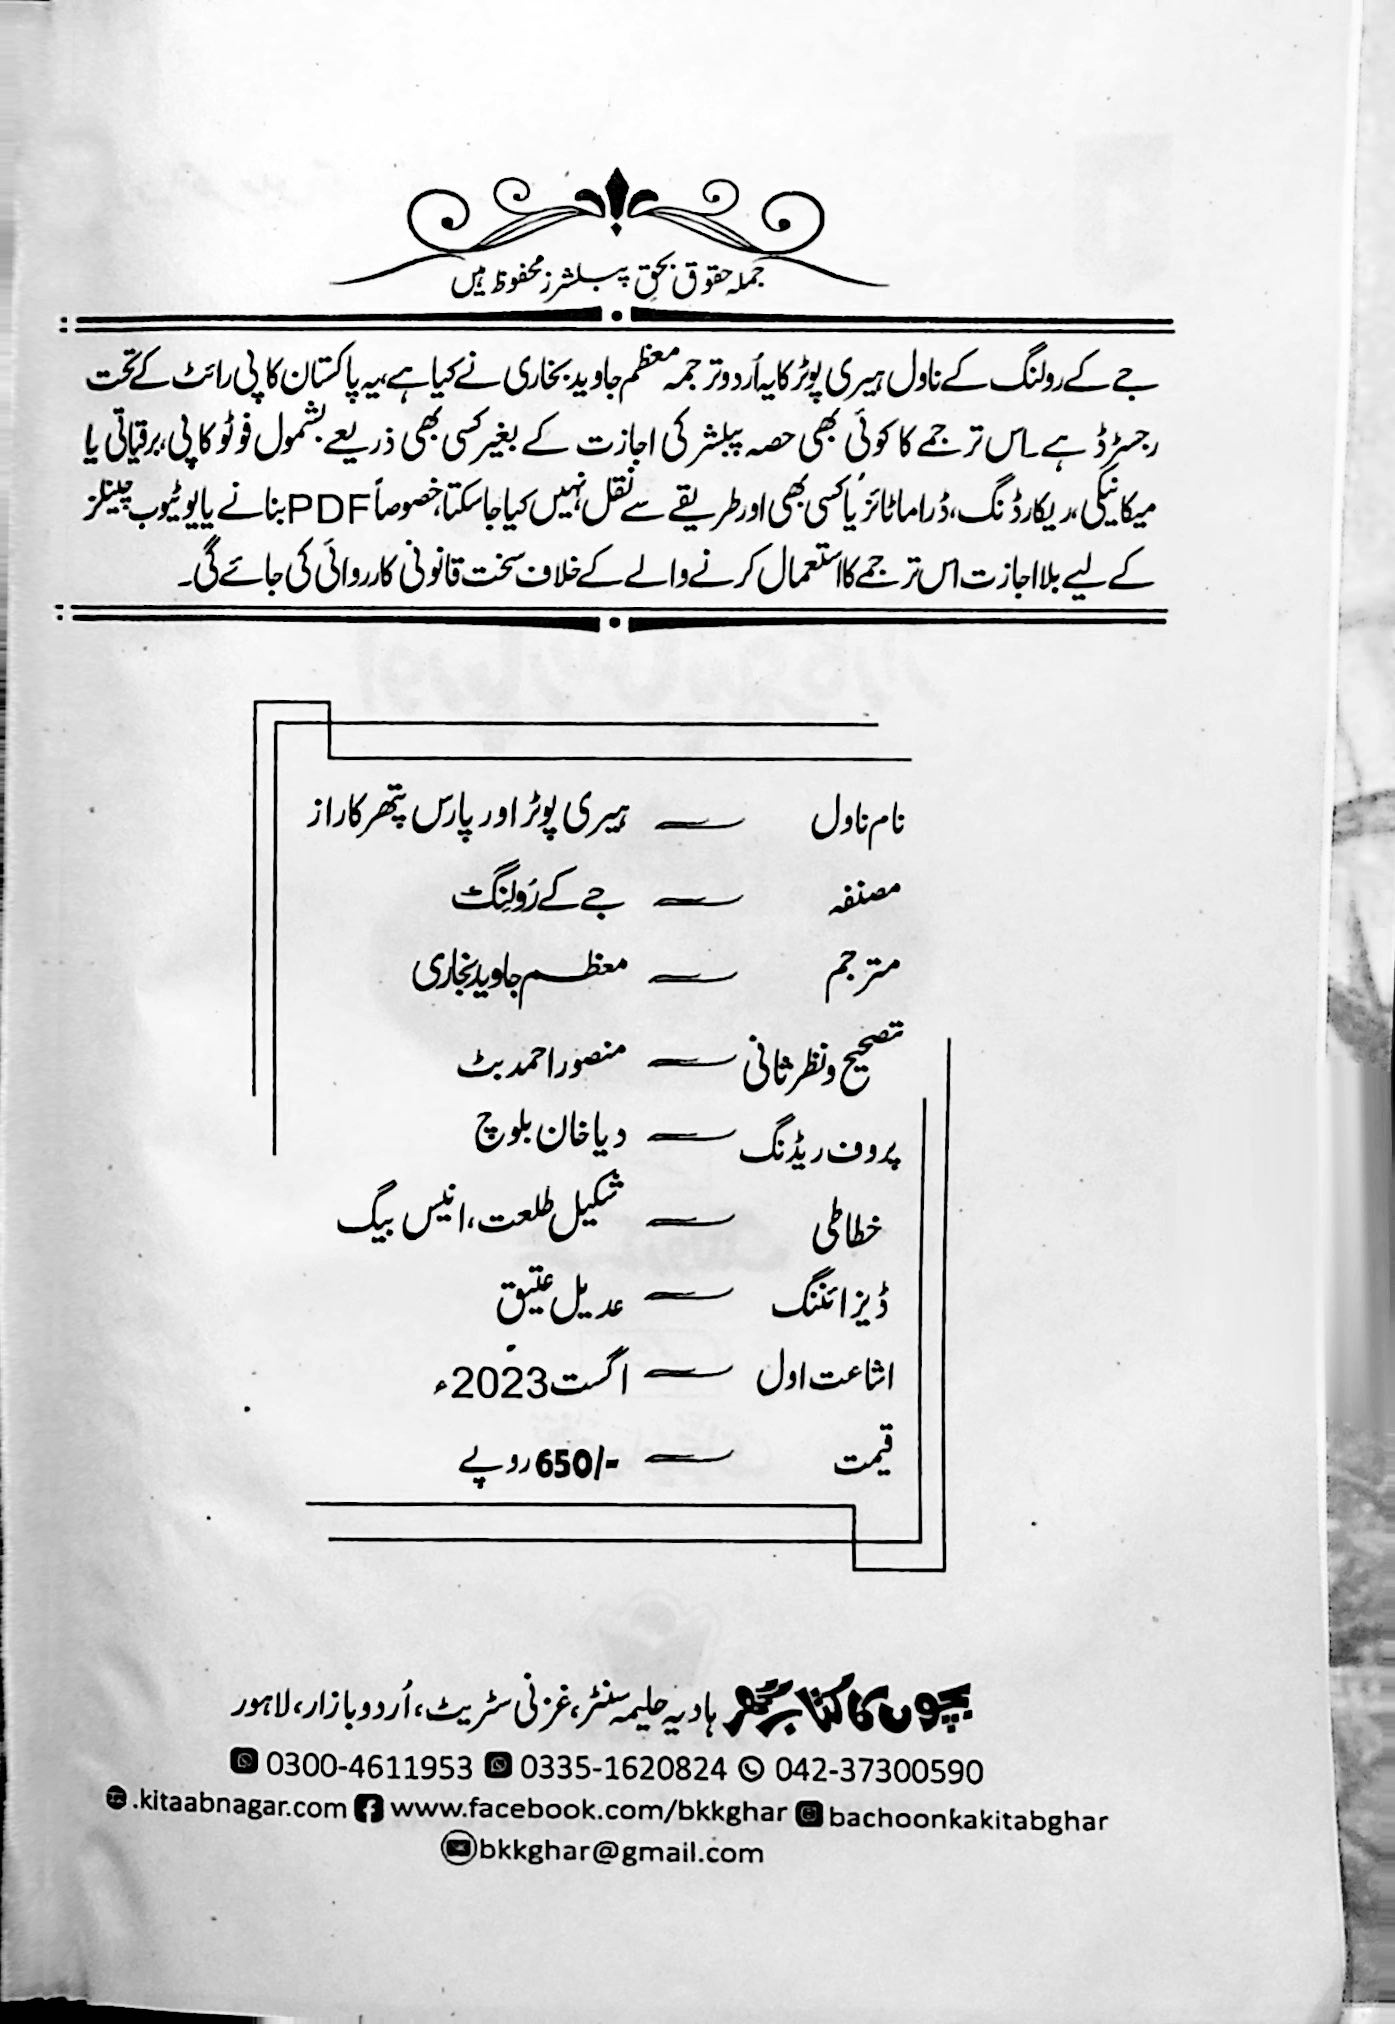 جملہ حقوق بحق پبلشرز محفوظ ہیں
جے کے رولنگ کے ناول ہیری پوٹر کا یہ اُردو ترجمہ معظم جاوید بخاری نے کیا ہے، یہ پاکستان کاپی رائٹ کے تحت
رجسٹرڈ ہے۔ اس ترجمے کا کوئی بھی حصہ پبلشر کی اجازت کے بغیر کسی بھی ذریعے بشمول فوٹو کاپی، برقیاتی یا
میکانیکی، ریکارڈنگ، ڈراماٹائز یا کسی بھی اور طریقے سے نقل نہیں کیا جا سکتا، خصوصاً PDF بنانے یا یوٹیوب چینلز
کے لیے بلا اجازت اس ترجمے کا استعمال کرنے والے کے خلاف سخت قانونی کارروائی کی جائے گی۔
نام ناول — ہیری پوٹر اور پارس پتھر کا راز
مصنفہ — جے کے رَولِنگ
مترجم — معظم جاوید بخاری
تصحیح و نظر ثانی — منصور احمد بٹ
پروف ریڈنگ — دیا خان بلوچ
خطاطی — شکیل طلعت، انیس بیگ
ڈیزائننگ — عدیل عتیق
اشاعت اول — اگست 2023ء
قیمت — 650/- روپے
بچوں کا کتاب گھر ہادیہ حلیمہ سنٹر، غزنی سٹریٹ، اُردو بازار، لاہور
0300-4611953 0335-1620824 042-37300590
.kitaabnagar.com www.facebook.com/bkkghar bachoonkakitabghar
bkkghar@gmail.com